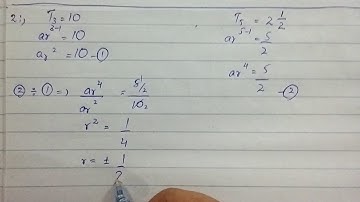 2:, T₃ = 10
ar³⁻¹ = 10
ar² = 10 - ①
T₅ = 2 1/2
ar⁵⁻¹ = 5/2
ar⁴ = 5/2 - ②
② ÷ ① => ar⁴/ar² = 5/2/10
r² = 1/4
r = ± 1/2